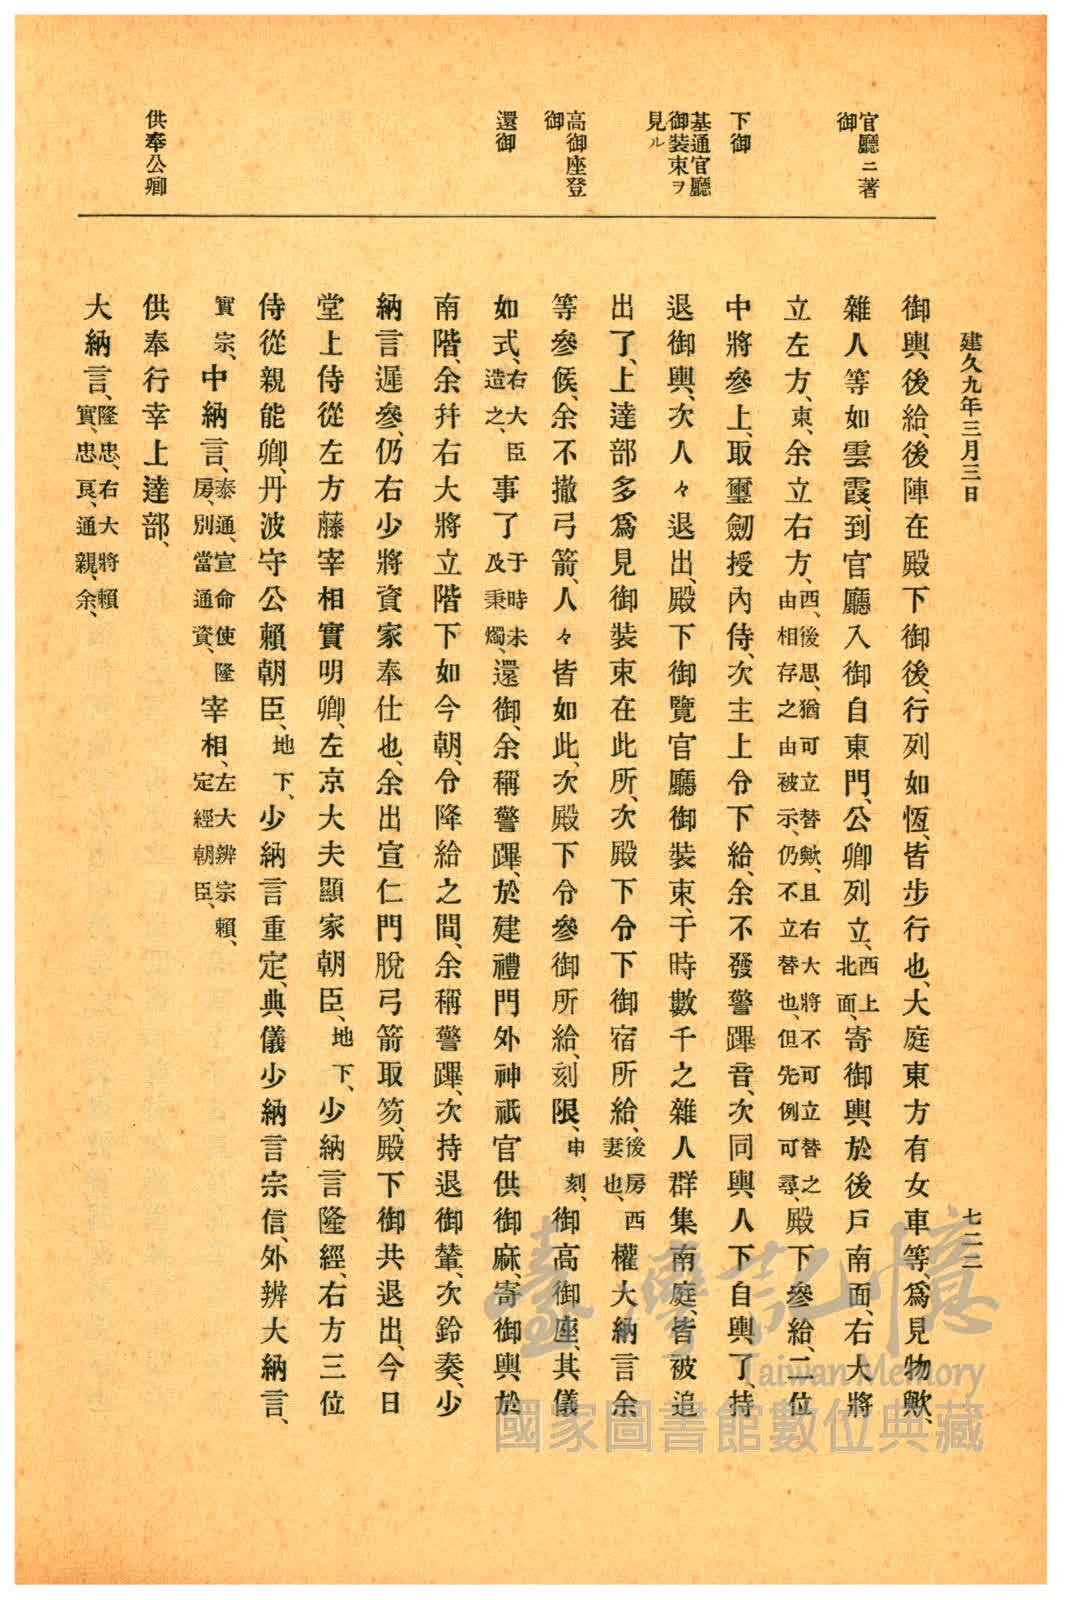 建久九年三月三日
七二二
官廳ニ著
御
下御
基通官廳
御裝束ヲ
見ル
高御座登
御
還御
供奉公卿
御輿、後給、後陣在殿下御後、行列如恆、皆步行也、大庭東方有女車等、爲見物歟、
雜人等如雲霞、到官廳入御自東門、公卿列立、西上北面、寄御輿於後戶南面、右大將
立左方、東、余立右方、西、後思、猶可立替歟、且右大將不可立替之由相存之由被示、仍不立替也、但先例可尋、殿下參給、二位
中將參上、取璽劒授內侍、次主上令下給、余不發警蹕音、次同輿、人下自輿了、持
退御輿、次人々退出、殿下御覽官廳御裝束、于時數千之雜人群集南庭、皆被追
出了、上達部多爲見御裝束在此所、次殿下令下御宿所給、後房西妻也、權大納言余
等參候、余不撤弓箭、人々皆如此、次殿下令參御所給、刻限、申刻、御高御座、其儀
如式、右大臣造之、事了于時未及秉燭、還御、余稱警蹕、於建禮門外神祇官供御麻、寄御輿於
南階、余幷右大將立階下如今朝、令降給之間、余稱警蹕、次持退御輦、次鈴奏、少
納言遲參、仍右少將資家奉仕也、余出宣仁門脫弓箭取笏、殿下御共退出、今日
堂上侍從左方藤宰相實明卿、左京大夫顯家朝臣、地下、少納言隆經、右方三位
侍從親能卿、丹波守公賴朝臣、地下、少納言重定、典儀少納言宗信、外辨大納言、
實宗、中納言、泰通、宣命使隆房、別當通資、宰相、左大辨宗賴、定經朝臣、
供奉行幸上達部、
大納言、隆忠、右大將賴實、忠良、通親、余、
臺灣記憶
Taiwan Memory
國家圖書館數位典藏